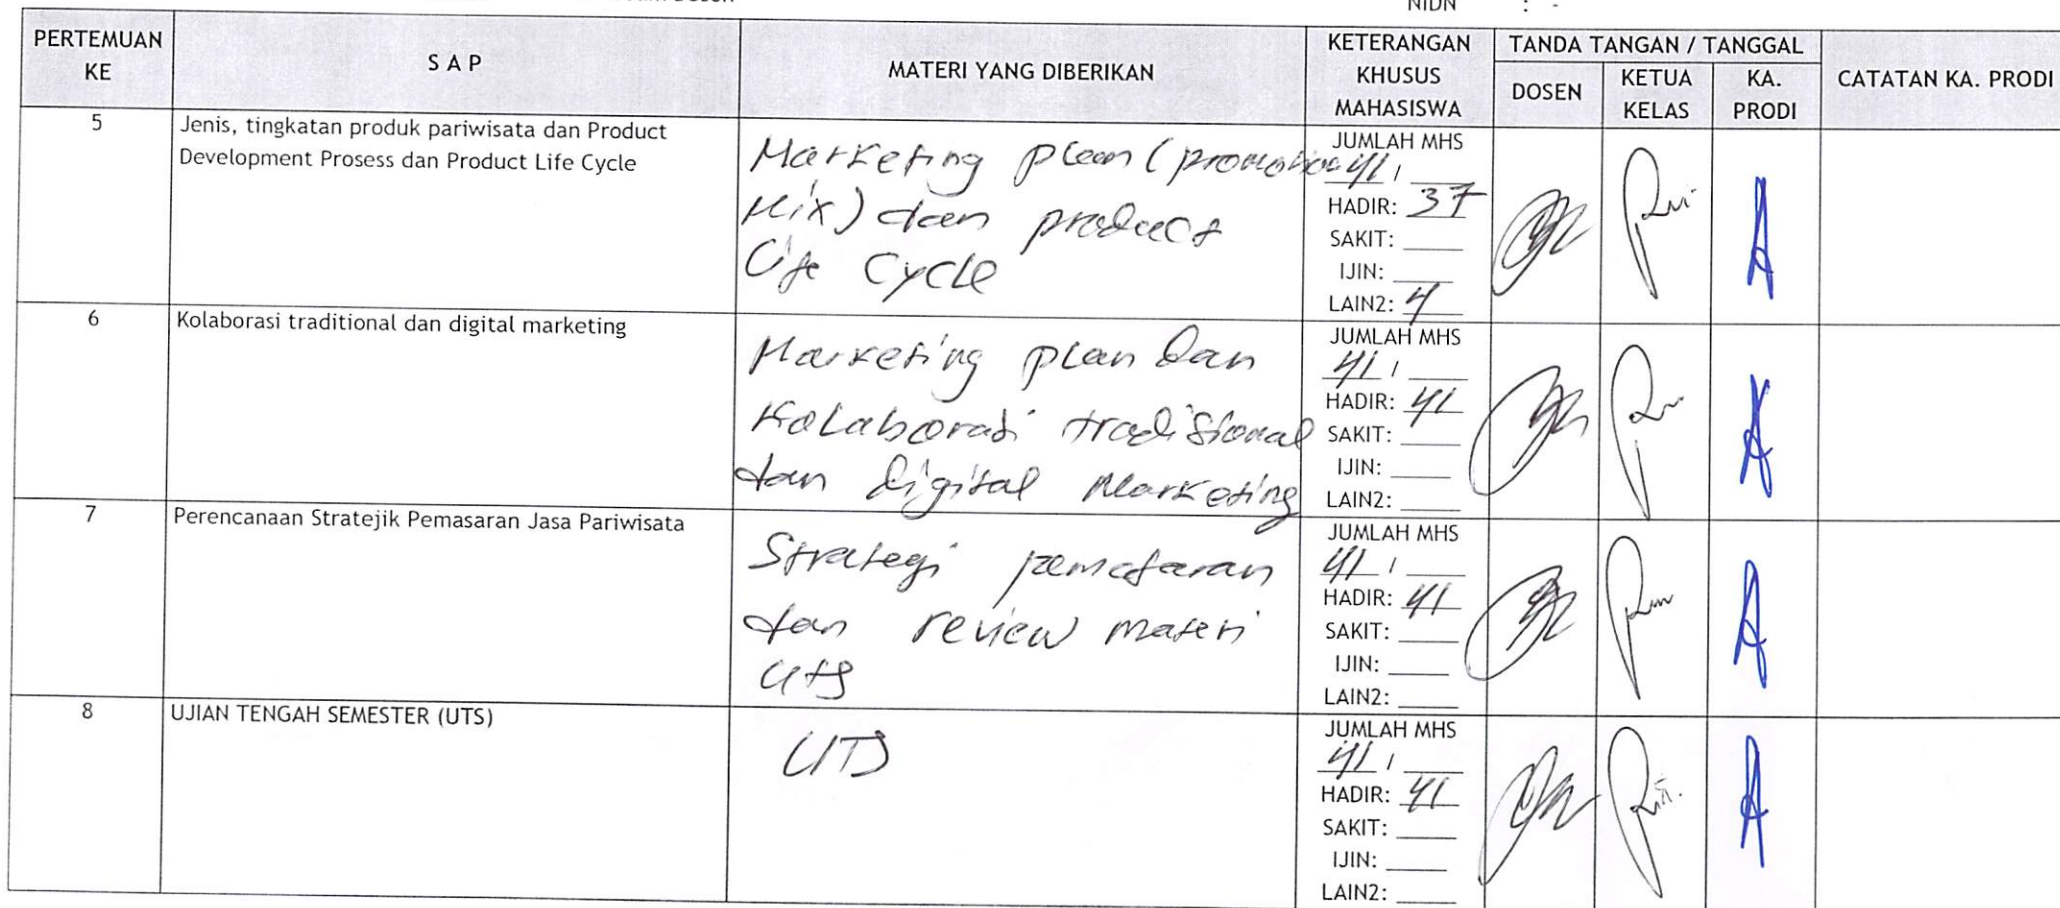 NIDN : -
PERTEMUAN KE
S A P
MATERI YANG DIBERIKAN
KETERANGAN KHUSUS MAHASISWA
TANDA TANGAN / TANGGAL
DOSEN
KETUA KELAS
KA. PRODI
CATATAN KA. PRODI
5
Jenis, tingkatan produk pariwisata dan Product
Development Prosess dan Product Life Cycle
Marketing plan (promotion
Mix) dan product
Life Cycle
JUMLAH MHS
41 /
HADIR: 37
SAKIT:
IJIN:
LAIN2: 4
6
Kolaborasi traditional dan digital marketing
Marketing plan dan
Kolaborasi tradisional
dan digital Marketing
JUMLAH MHS
41 /
HADIR: 41
SAKIT:
IJIN:
LAIN2:
7
Perencanaan Stratejik Pemasaran Jasa Pariwisata
Strategi pemasaran
dan review materi
UTS
JUMLAH MHS
41 /
HADIR: 41
SAKIT:
IJIN:
LAIN2:
8
UJIAN TENGAH SEMESTER (UTS)
UTS
JUMLAH MHS
41 /
HADIR: 41
SAKIT:
IJIN:
LAIN2: